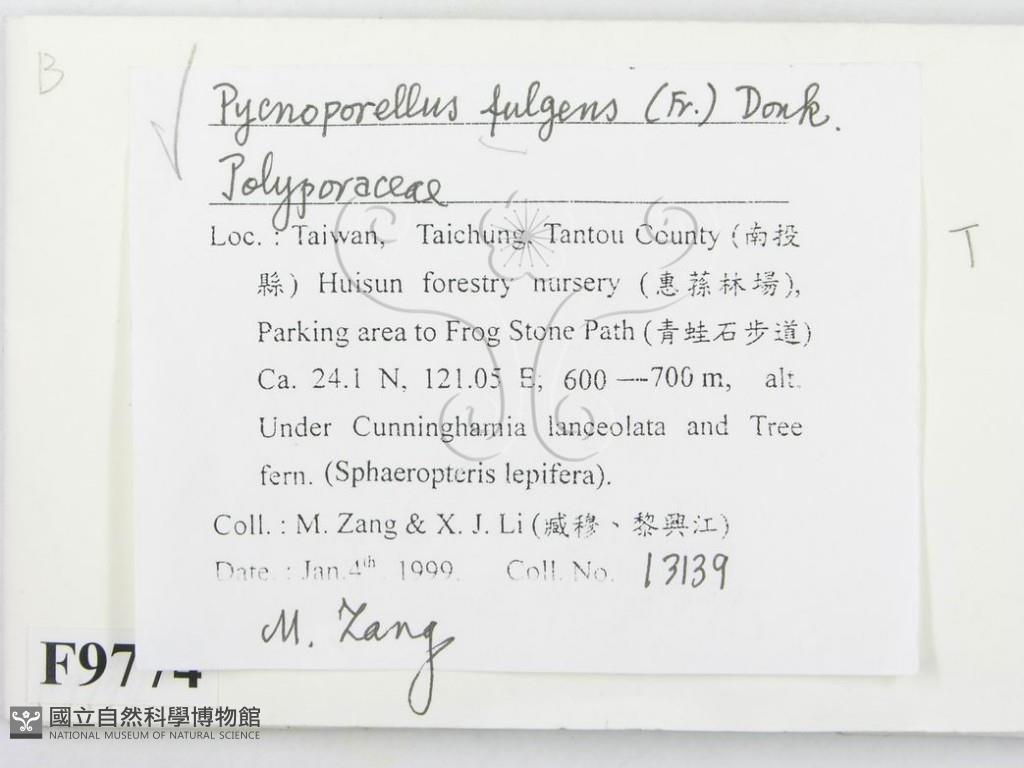 B
Pycnoporellus fulgens (Fr.) Donk.
Polyporaceae
T
Loc. : Taiwan, Taichung, Tantou County (南投
縣) Huisun forestry nursery (惠蓀林場),
Parking area to Frog Stone Path (青蛙石步道)
Ca. 24.1 N, 121.05 E; 600 —700 m, alt.
Under Cunninghamia lanceolata and Tree
fern. (Sphaeropteris lepifera).
Coll. : M. Zang & X. J. Li (臧穆、黎興江)
Date. : Jan.4th 1999. Coll. No. 13139
M. Zang
F9774
國立自然科學博物館
NATIONAL MUSEUM OF NATURAL SCIENCE